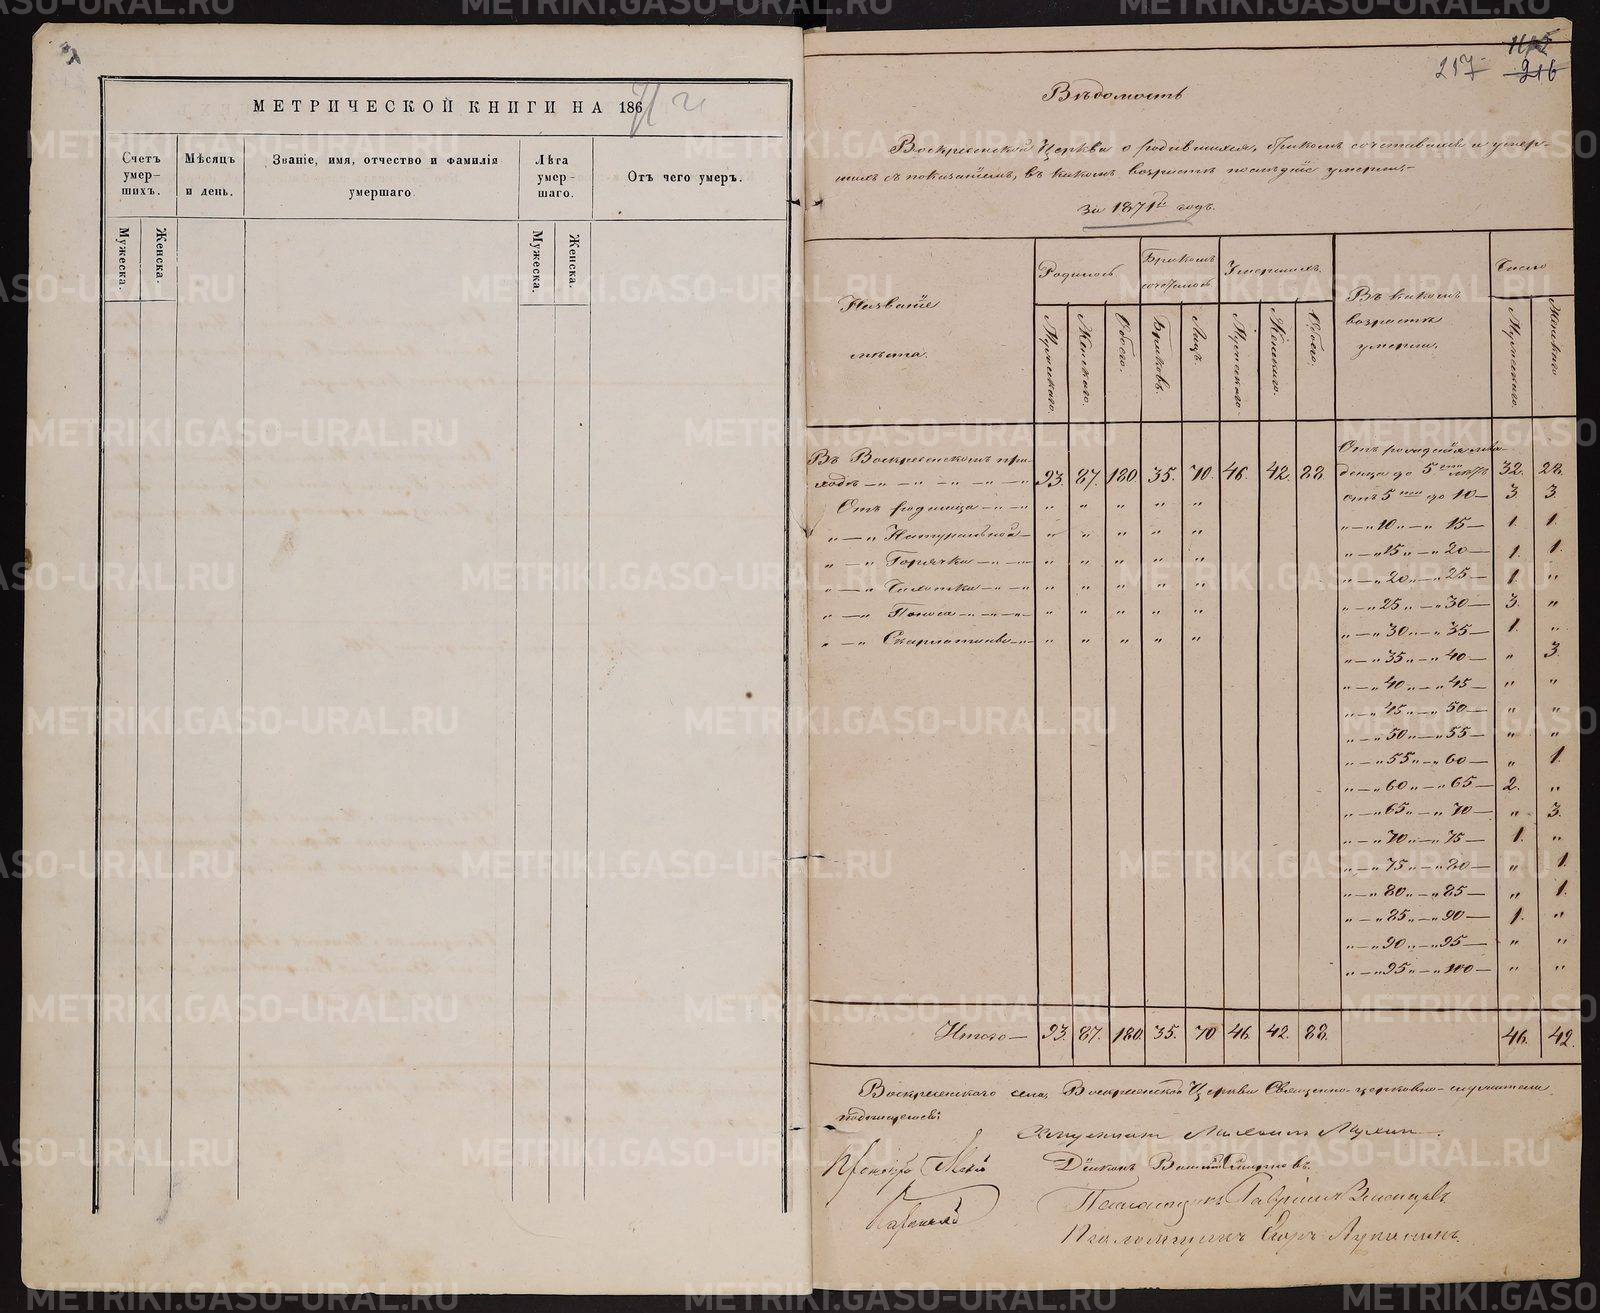 МЕТРИЧЕСКОЙ КНИГИ НА 18671 г
Счетъ умер-шихъ.
Мѣсяцъ и день.
Званіе, имя, отчество и фамилія умершаго.
Лѣта умер-шаго.
Отъ чего умеръ.
Мужеска.
Женска.
Мужеска.
Женска.
217
216
Вѣдомость
Воскресенской Церкви о родившихся, бракомъ сочетавшихся и умер-
шихъ съ показаніемъ, въ какомъ возрастѣ послѣдніе умерли,-
За 1871й годъ.
Названіе мѣста.
Родилось
Бракомъ сочеталось
Умершихъ
Въ какомъ возрастѣ умерли.
Число
Мужескаго.
Женскаго.
Обоего.
Браковъ.
Лицъ.
Мужескаго.
Женскаго.
Обоего.
Мужескаго.
Женскаго
Въ Воскресенскомъ при-
ходѣ — „ — „ — „ — „ — 93. 87. 180 35. 70. 46. 42. 88.
Отъ родимца — „ — „ „ „ „ „ „
„ — „ Натуральной — „ „ „ „ „
„ — „ Горячка — „ — „ „ „ „ „ „
„ — „ Чахотка — „ — „ „ „ „ „ „
„ — „ Поноса — „ — „ — „ „ „ „ „ „
„ — „ Скарлатина — „ „ „ „ „ „
Отъ рожденія мла-
денца до 5ти лѣтъ 32. 28.
отъ 5ти до 10 — 3. 3.
„ — „ 10 „ — „ 15 — 1. 1.
„ — „ 15 „ — „ 20 — 1. 1.
„ — „ 20 „ — „ 25 — 1. „
„ — „ 25 „ — „ 30 — 3. „
„ — „ 30 „ — „ 35 — 1. „
„ — „ 35 „ — „ 40 — „ 3.
„ — „ 40 „ — „ 45 — „ „
„ — „ 45 „ — „ 50 — „ „
„ — „ 50 „ — „ 55 — „ „
„ — „ 55 „ — „ 60 — „ 1.
„ — „ 60 „ — „ 65 — 2. „
„ — „ 65 „ — „ 70 — „ 3.
„ — „ 70 „ — „ 75 — 1. „
„ — „ 75 „ — „ 80 — „ 1.
„ — „ 80 „ — „ 85 — „ 1.
„ — „ 85 „ — „ 90 — 1. „
„ — „ 90 „ — „ 95 — „ „
„ — „ 95 „ — „ 100 — „ „
Итого — 93. 87. 180. 35. 70 46. 42. 88. 46. 42.
Воскресенскаго села, Воскресенской Церкви Священно-церковно-служители
подписуются:
Михаилъ
Діаконъ Смирновъ.
Гавріилъ
Псаломщикъ Лукининъ.
METRIKI.GASO-URAL.RU